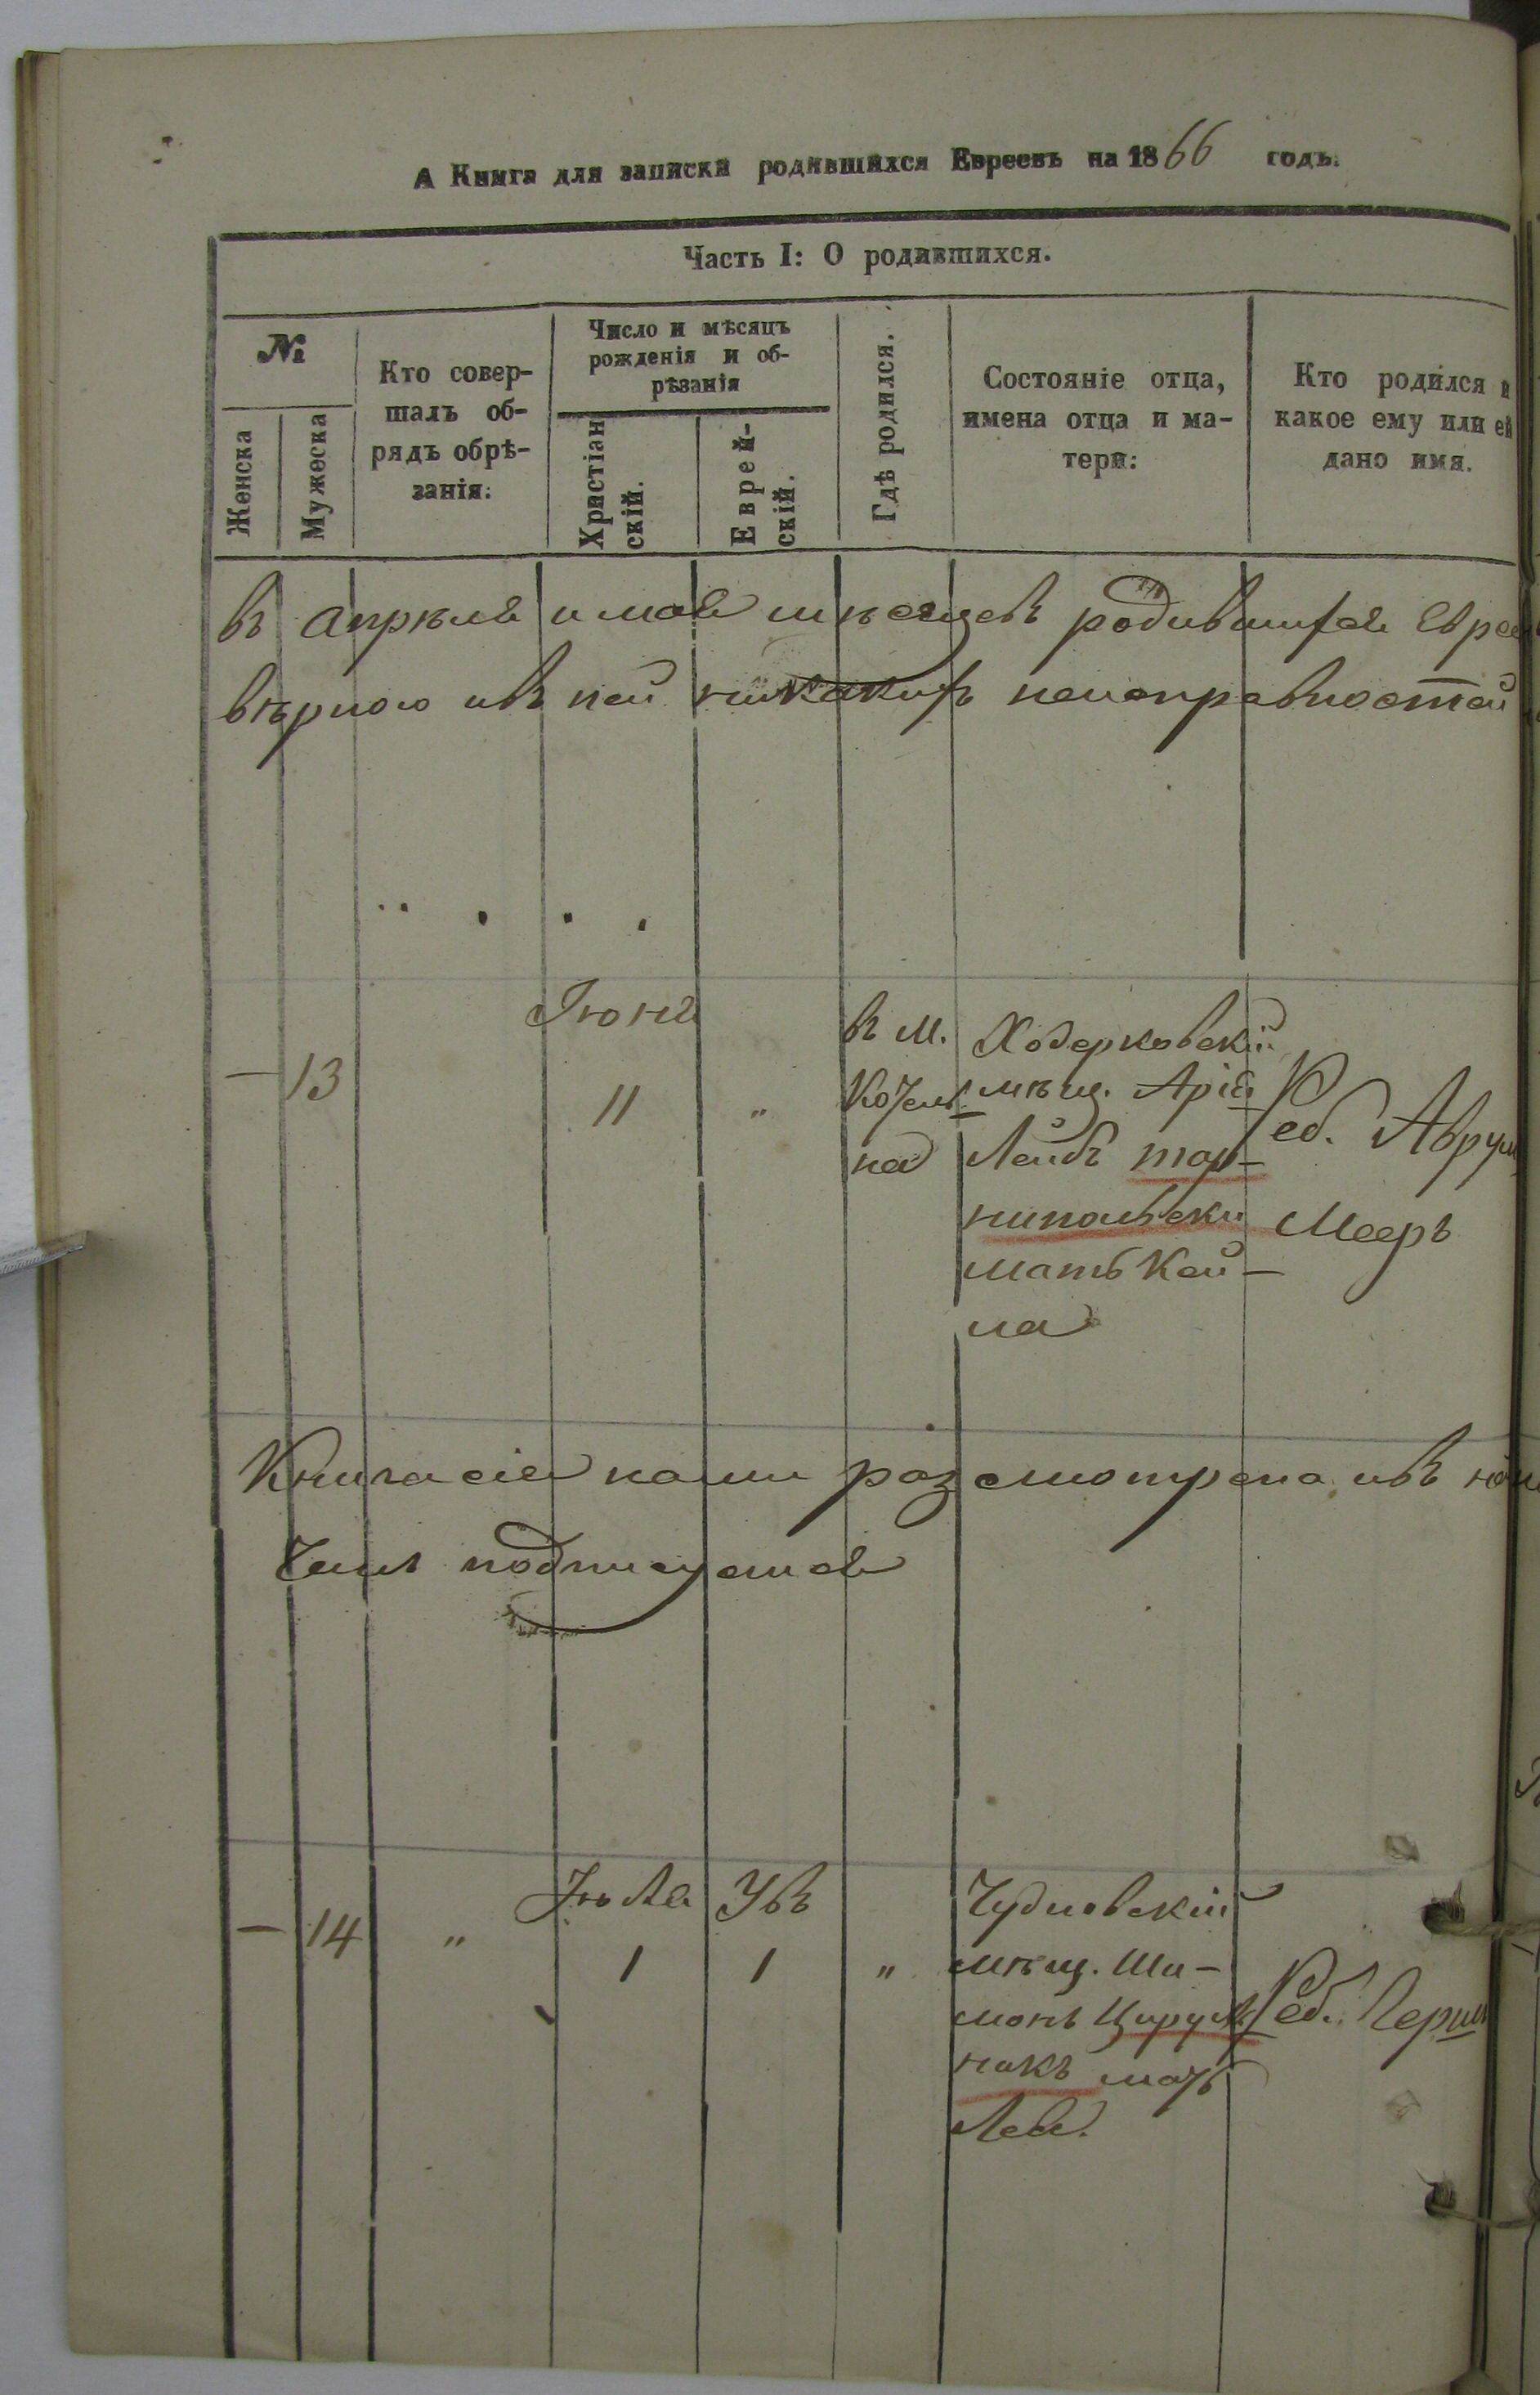 А Книга для записки родившихся Евреевъ на 1866 годъ.
Часть I: О родившихся.
№
Женска
Мужеска
Кто совер-
шалъ об-
рядъ обрѣ-
занія:
Число и мѣсяцъ
рожденія и об-
рѣзанія
Христіан
скій.
Еврей-
скій.
Гдѣ родился.
Состояніе отца,
имена отца и ма-
тери:
Кто родился и
какое ему или ей
дано имя.
въ апрѣлѣ и маѣ мѣсецевъ родившихся Евре
вѣрною и въ ней никакихъ неисправностей
— 13
Іюня
11
"
въ м.
на
Ходерковскій
мѣщ. Арія
Лейбъ тар-
нипольски
мать Кей-
ла
Реб. Аврум
Мееръ
Книга сія нами разсмотрена и въ
чемъ подписуемся
— 14
"
Іюля
1
Увъ
1
"
Чудновскій
мѣщ. Ши-
монъ Цируль
никъ мать
Лея.
Реб. Герш